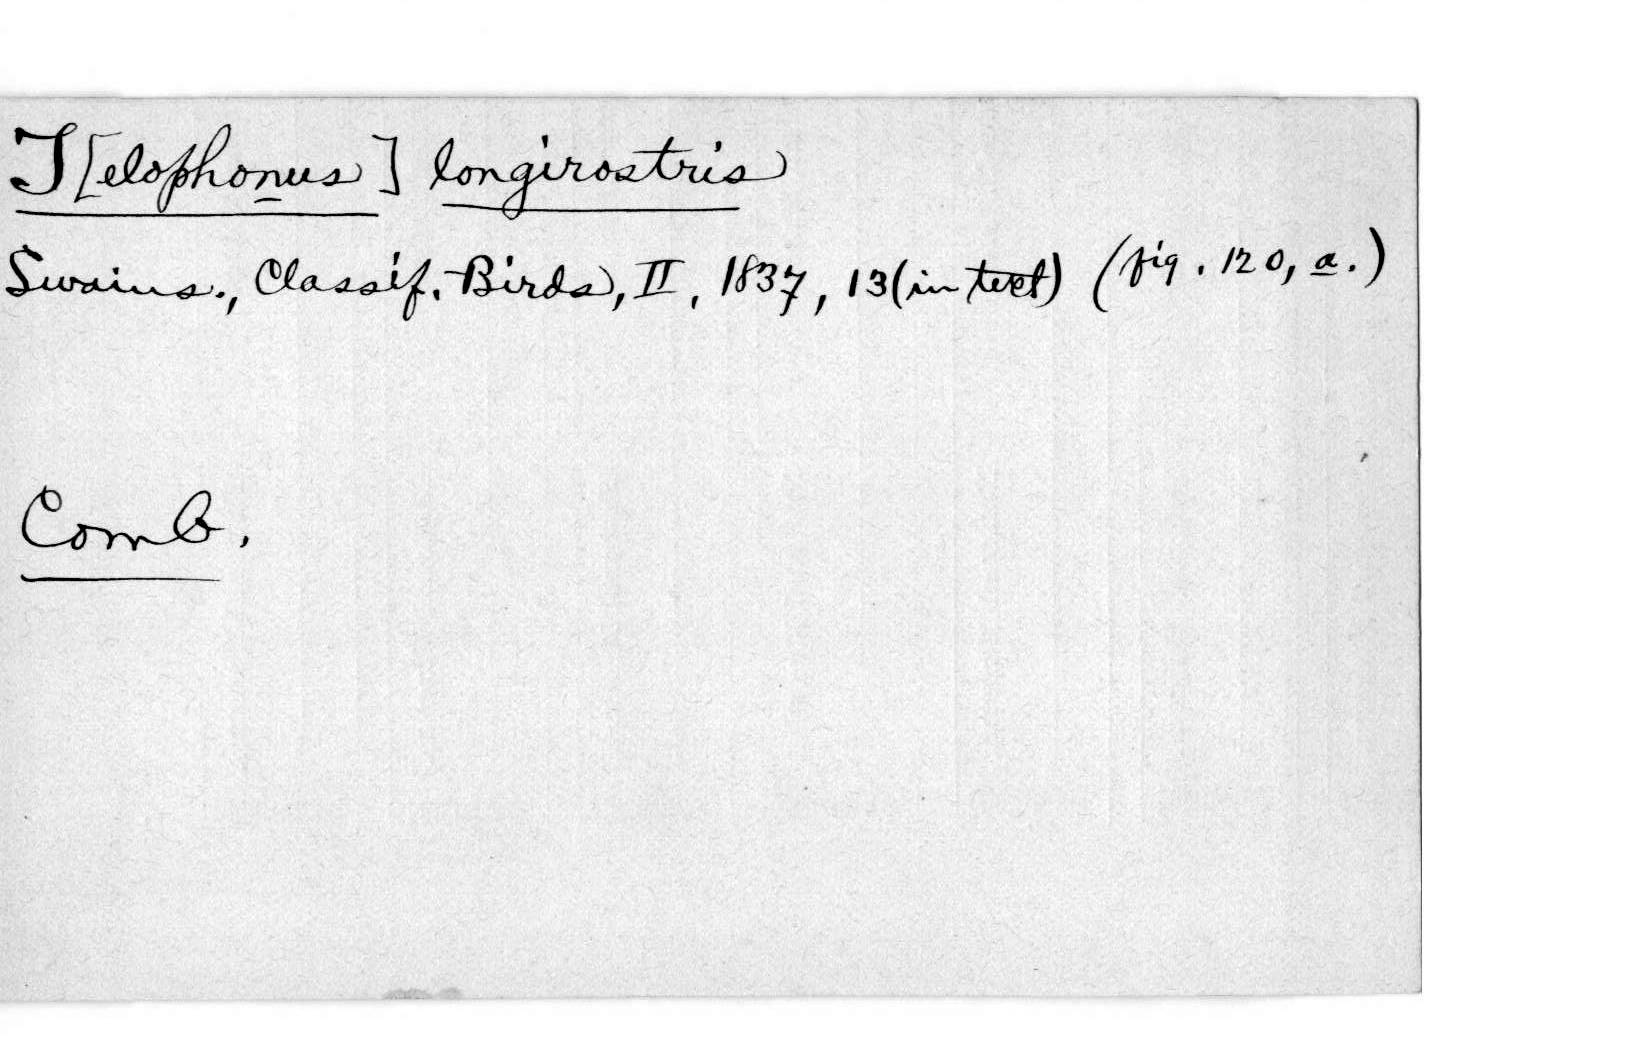 T[elophonus] longirostris
Swains., Classif. Birds, II, 1837, 13 (in text) (fig. 120, a.)
Comb.